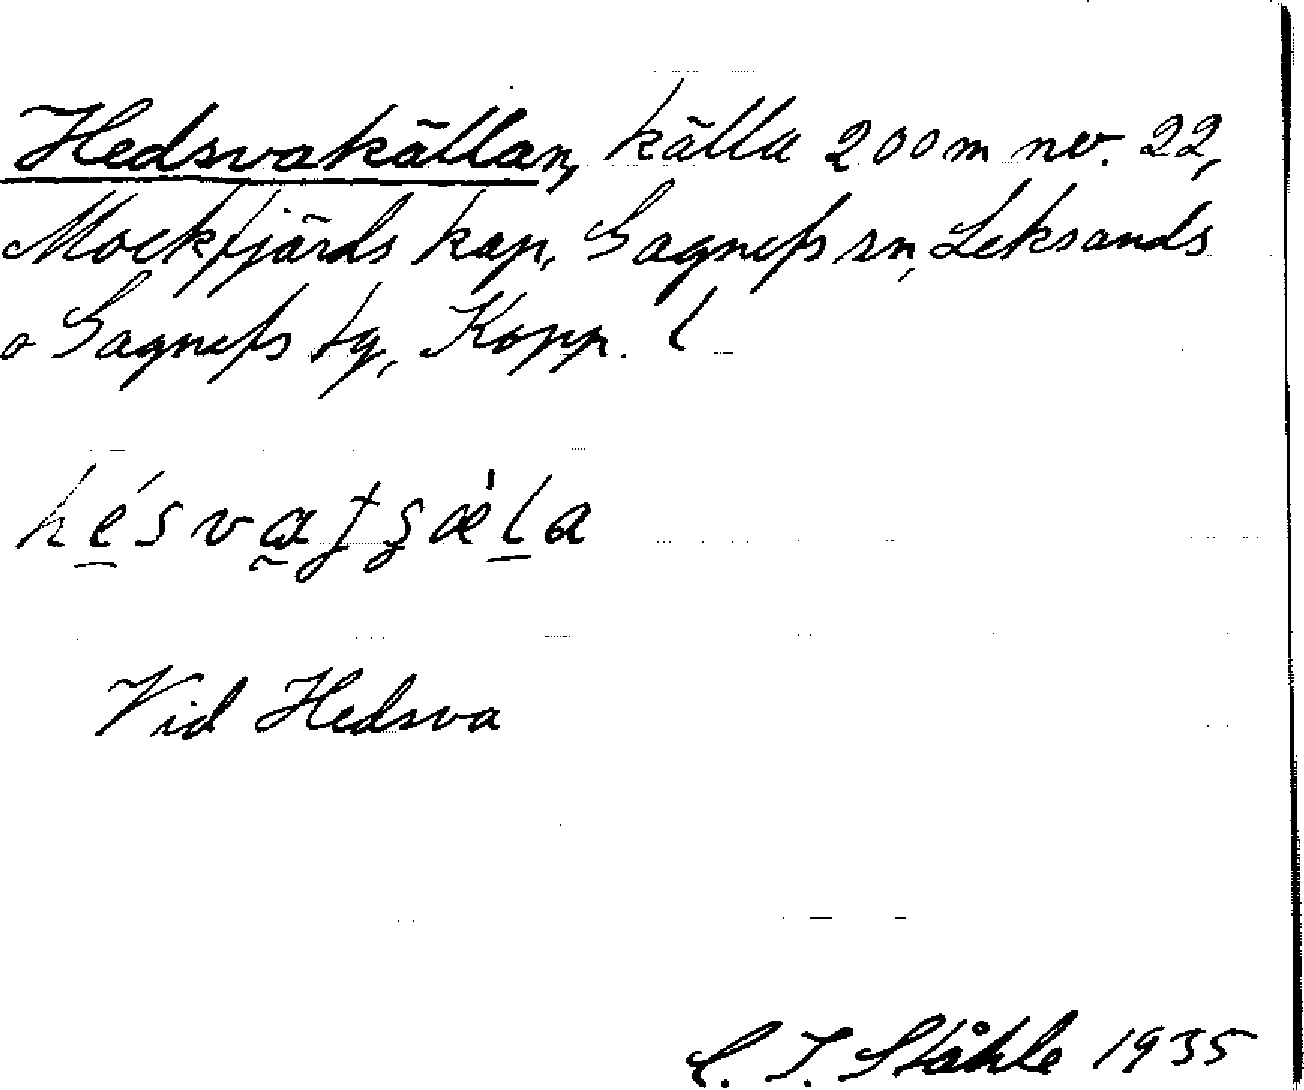 Hedsvakällan, källa 200 m nv. 22,
Mockfjärds kap, Gagnefs sn, Leksands
o Gagnefs tg, Kopp. l
Vid Hedsva
C. I. Ståhle 1935